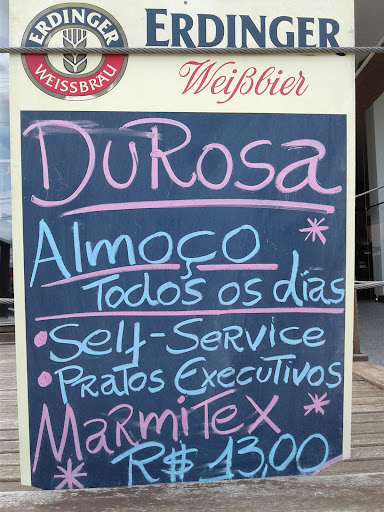 ERDINGER
WEISSBRÄU
ERDINGER
Weißbier
DuRosa
Almoço
Todos os días
• Self-Service
• Pratos Executivos
MaRmiTex
R$ 13,00